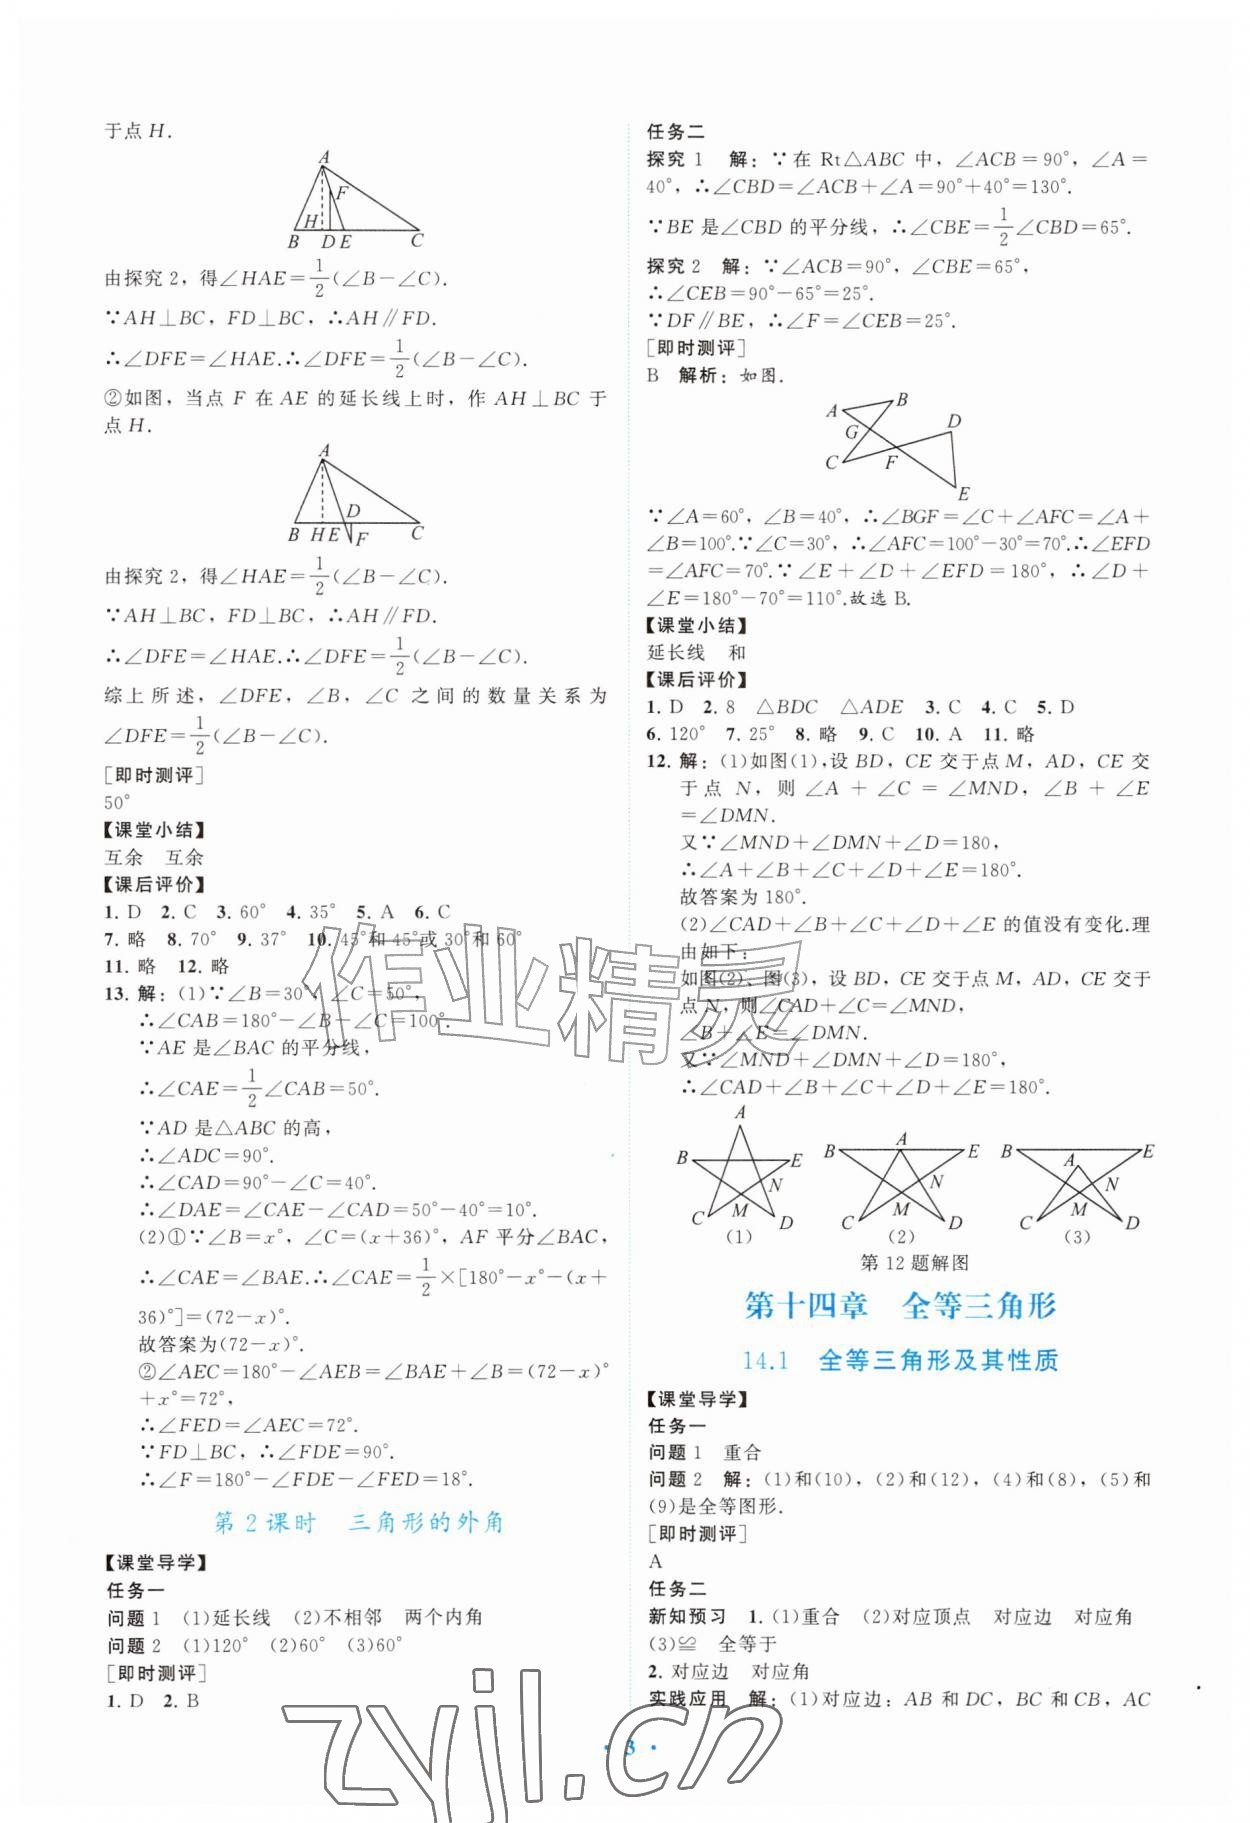 于点 H.
A
F
H
B D E C
由探究 2，得∠HAE=1/2(∠B-∠C).
∵AH⊥BC，FD⊥BC，∴AH∥FD.
∴∠DFE=∠HAE.∴∠DFE=1/2(∠B-∠C).
②如图，当点 F 在 AE 的延长线上时，作 AH⊥BC 于
点 H.
A
D
B H E F C
由探究 2，得∠HAE=1/2(∠B-∠C).
∵AH⊥BC，FD⊥BC，∴AH∥FD.
∴∠DFE=∠HAE.∴∠DFE=1/2(∠B-∠C).
综上所述，∠DFE，∠B，∠C 之间的数量关系为
∠DFE=1/2(∠B-∠C).
[即时测评]
50°
【课堂小结】
互余　互余
【课后评价】
1. D　2. C　3. 60°　4. 35°　5. A　6. C
7. 略　8. 70°　9. 37°　10. 45°和 45°或 30°和 60°
11. 略　12. 略
13. 解：(1)∵∠B=30°，∠C=50°，
∴∠CAB=180°-∠B-∠C=100°.
∵AE 是∠BAC 的平分线，
∴∠CAE=1/2∠CAB=50°.
∵AD 是△ABC 的高，
∴∠ADC=90°.
∴∠CAD=90°-∠C=40°.
∴∠DAE=∠CAE-∠CAD=50°-40°=10°.
(2)①∵∠B=x°，∠C=(x+36)°，AF 平分∠BAC，
∴∠CAE=∠BAE.∴∠CAE=1/2×[180°-x°-(x+
36)°]=(72-x)°.
故答案为(72-x)°.
②∠AEC=180°-∠AEB=∠BAE+∠B=(72-x)°
+x°=72°，
∴∠FED=∠AEC=72°.
∵FD⊥BC，∴∠FDE=90°.
∴∠F=180°-∠FDE-∠FED=18°.
第 2 课时　三角形的外角
【课堂导学】
任务一
问题 1　(1)延长线　(2)不相邻　两个内角
问题 2　(1)120°　(2)60°　(3)60°
[即时测评]
1. D　2. B
任务二
探究 1　解：∵在 Rt△ABC 中，∠ACB=90°，∠A=
40°，∴∠CBD=∠ACB+∠A=90°+40°=130°.
∵BE 是∠CBD 的平分线，∴∠CBE=1/2∠CBD=65°.
探究 2　解：∵∠ACB=90°，∠CBE=65°，
∴∠CEB=90°-65°=25°.
∵DF∥BE，∴∠F=∠CEB=25°.
[即时测评]
B　解析：如图.
A B
G D
C F
E
∵∠A=60°，∠B=40°，∴∠BGF=∠C+∠AFC=∠A+
∠B=100°.∵∠C=30°，∴∠AFC=100°-30°=70°.∴∠EFD
=∠AFC=70°.∵∠E+∠D+∠EFD=180°，∴∠D+
∠E=180°-70°=110°.故选 B.
【课堂小结】
延长线　和
【课后评价】
1. D　2. 8　△BDC　△ADE　3. C　4. C　5. D
6. 120°　7. 25°　8. 略　9. C　10. A　11. 略
12. 解：(1)如图(1)，设 BD，CE 交于点 M，AD，CE 交
于点 N，则∠A+∠C=∠MND，∠B+∠E
=∠DMN.
又∵∠MND+∠DMN+∠D=180，
∴∠A+∠B+∠C+∠D+∠E=180°.
故答案为 180°.
(2)∠CAD+∠B+∠C+∠D+∠E 的值没有变化.理
由如下：
如图(2)、图(3)，设 BD，CE 交于点 M，AD，CE 交于
点 N，则∠CAD+∠C=∠MND，
∠B+∠E=∠DMN.
又∵∠MND+∠DMN+∠D=180°，
∴∠CAD+∠B+∠C+∠D+∠E=180°.
A
B E B A E B E
A
N N N
C M D C M D C M D
(1) (2) (3)
第 12 题解图
第十四章　全等三角形
14.1　全等三角形及其性质
【课堂导学】
任务一
问题 1　重合
问题 2　解：(1)和(10)，(2)和(12)，(4)和(8)，(5)和
(9)是全等图形.
[即时测评]
A
任务二
新知预习　1. (1)重合　(2)对应顶点　对应边　对应角
(3)≌　全等于
2. 对应边　对应角
实践应用　解：(1)对应边：AB 和 DC，BC 和 CB，AC
· 3 ·
作业精灵
zyjl.cn